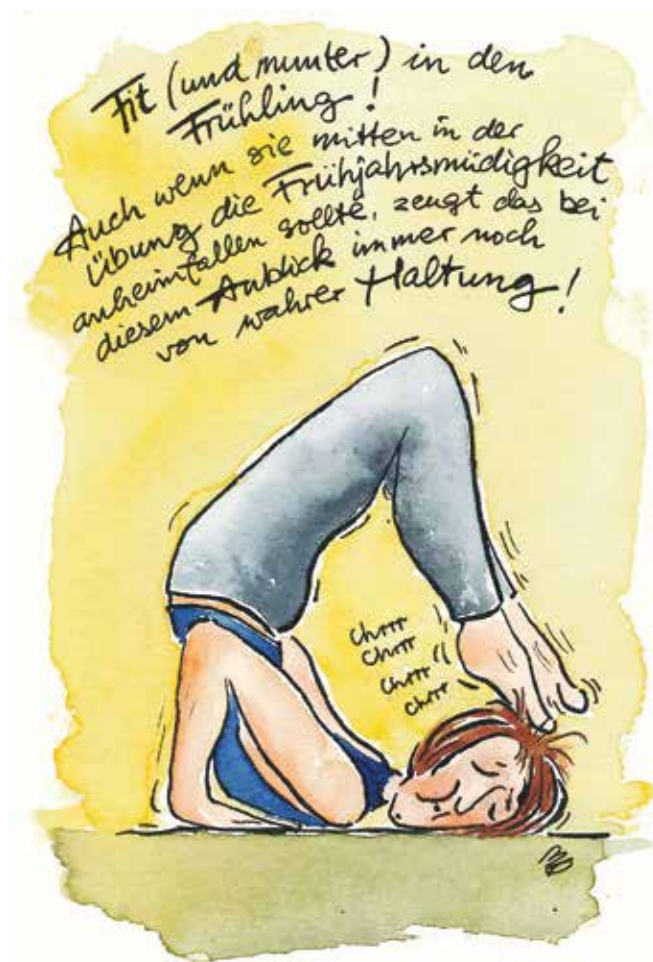 Fit (und munter) in den
Frühling!
Auch wenn sie mitten in der
Übung die Frühjahrsmüdigkeit
anheimfallen sollte, zeugt das bei
diesem Anblick immer noch
von wahrer Haltung!
chrrr
chrrr
chrrr
chrrr